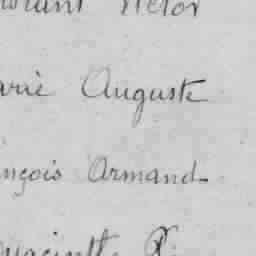 Victor
arie Auguste
ançois Armand
yacinthe